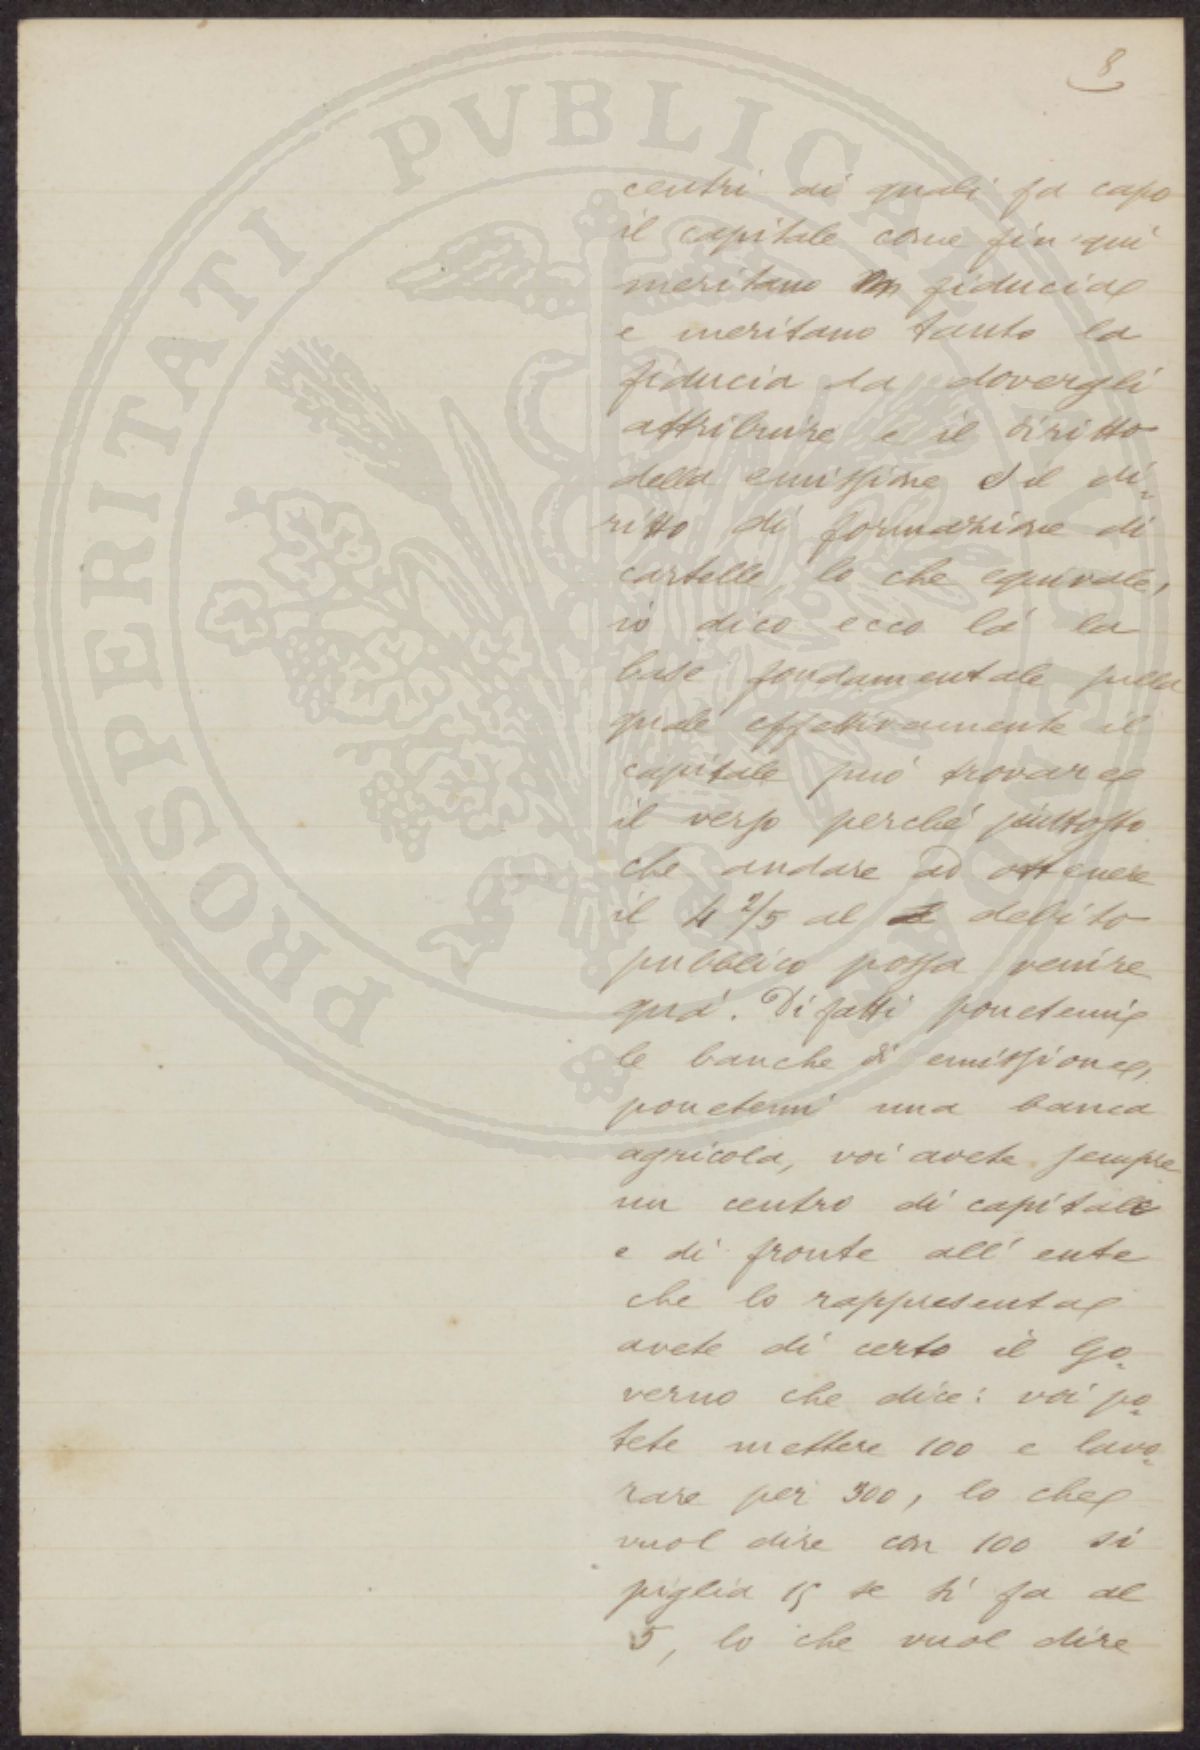 8
centri ai quali fa capo
il capitale come fin qui
meritano fiducia
e meritano tanto la
fiducia da dovergli
attribuire e il diritto
della emissione e il di-
ritto di formazione di
cartelle, lo che equivale,
io dico ecco là la
base fondamentale sulla
quale effettivamente il
capitale può trovare
il verso perché piuttosto
che andare ad ottenere
il 4 2/5 al debito
pubblico possa venire
quà. Di fatti ponetemi
le banche di emissione,
ponetemi una banca
agricola, voi avete sempre
un centro di capitale
e di fronte all'ente
che lo rappresenta
avete di certo il Go-
verno che dice: voi po-
tete mettere 100 e lavo-
rare per 300, lo che
vuol dire con 100 si
piglia 15 se si fa al
5, lo che vuol dire
PROSPERITATI PVBLICAE